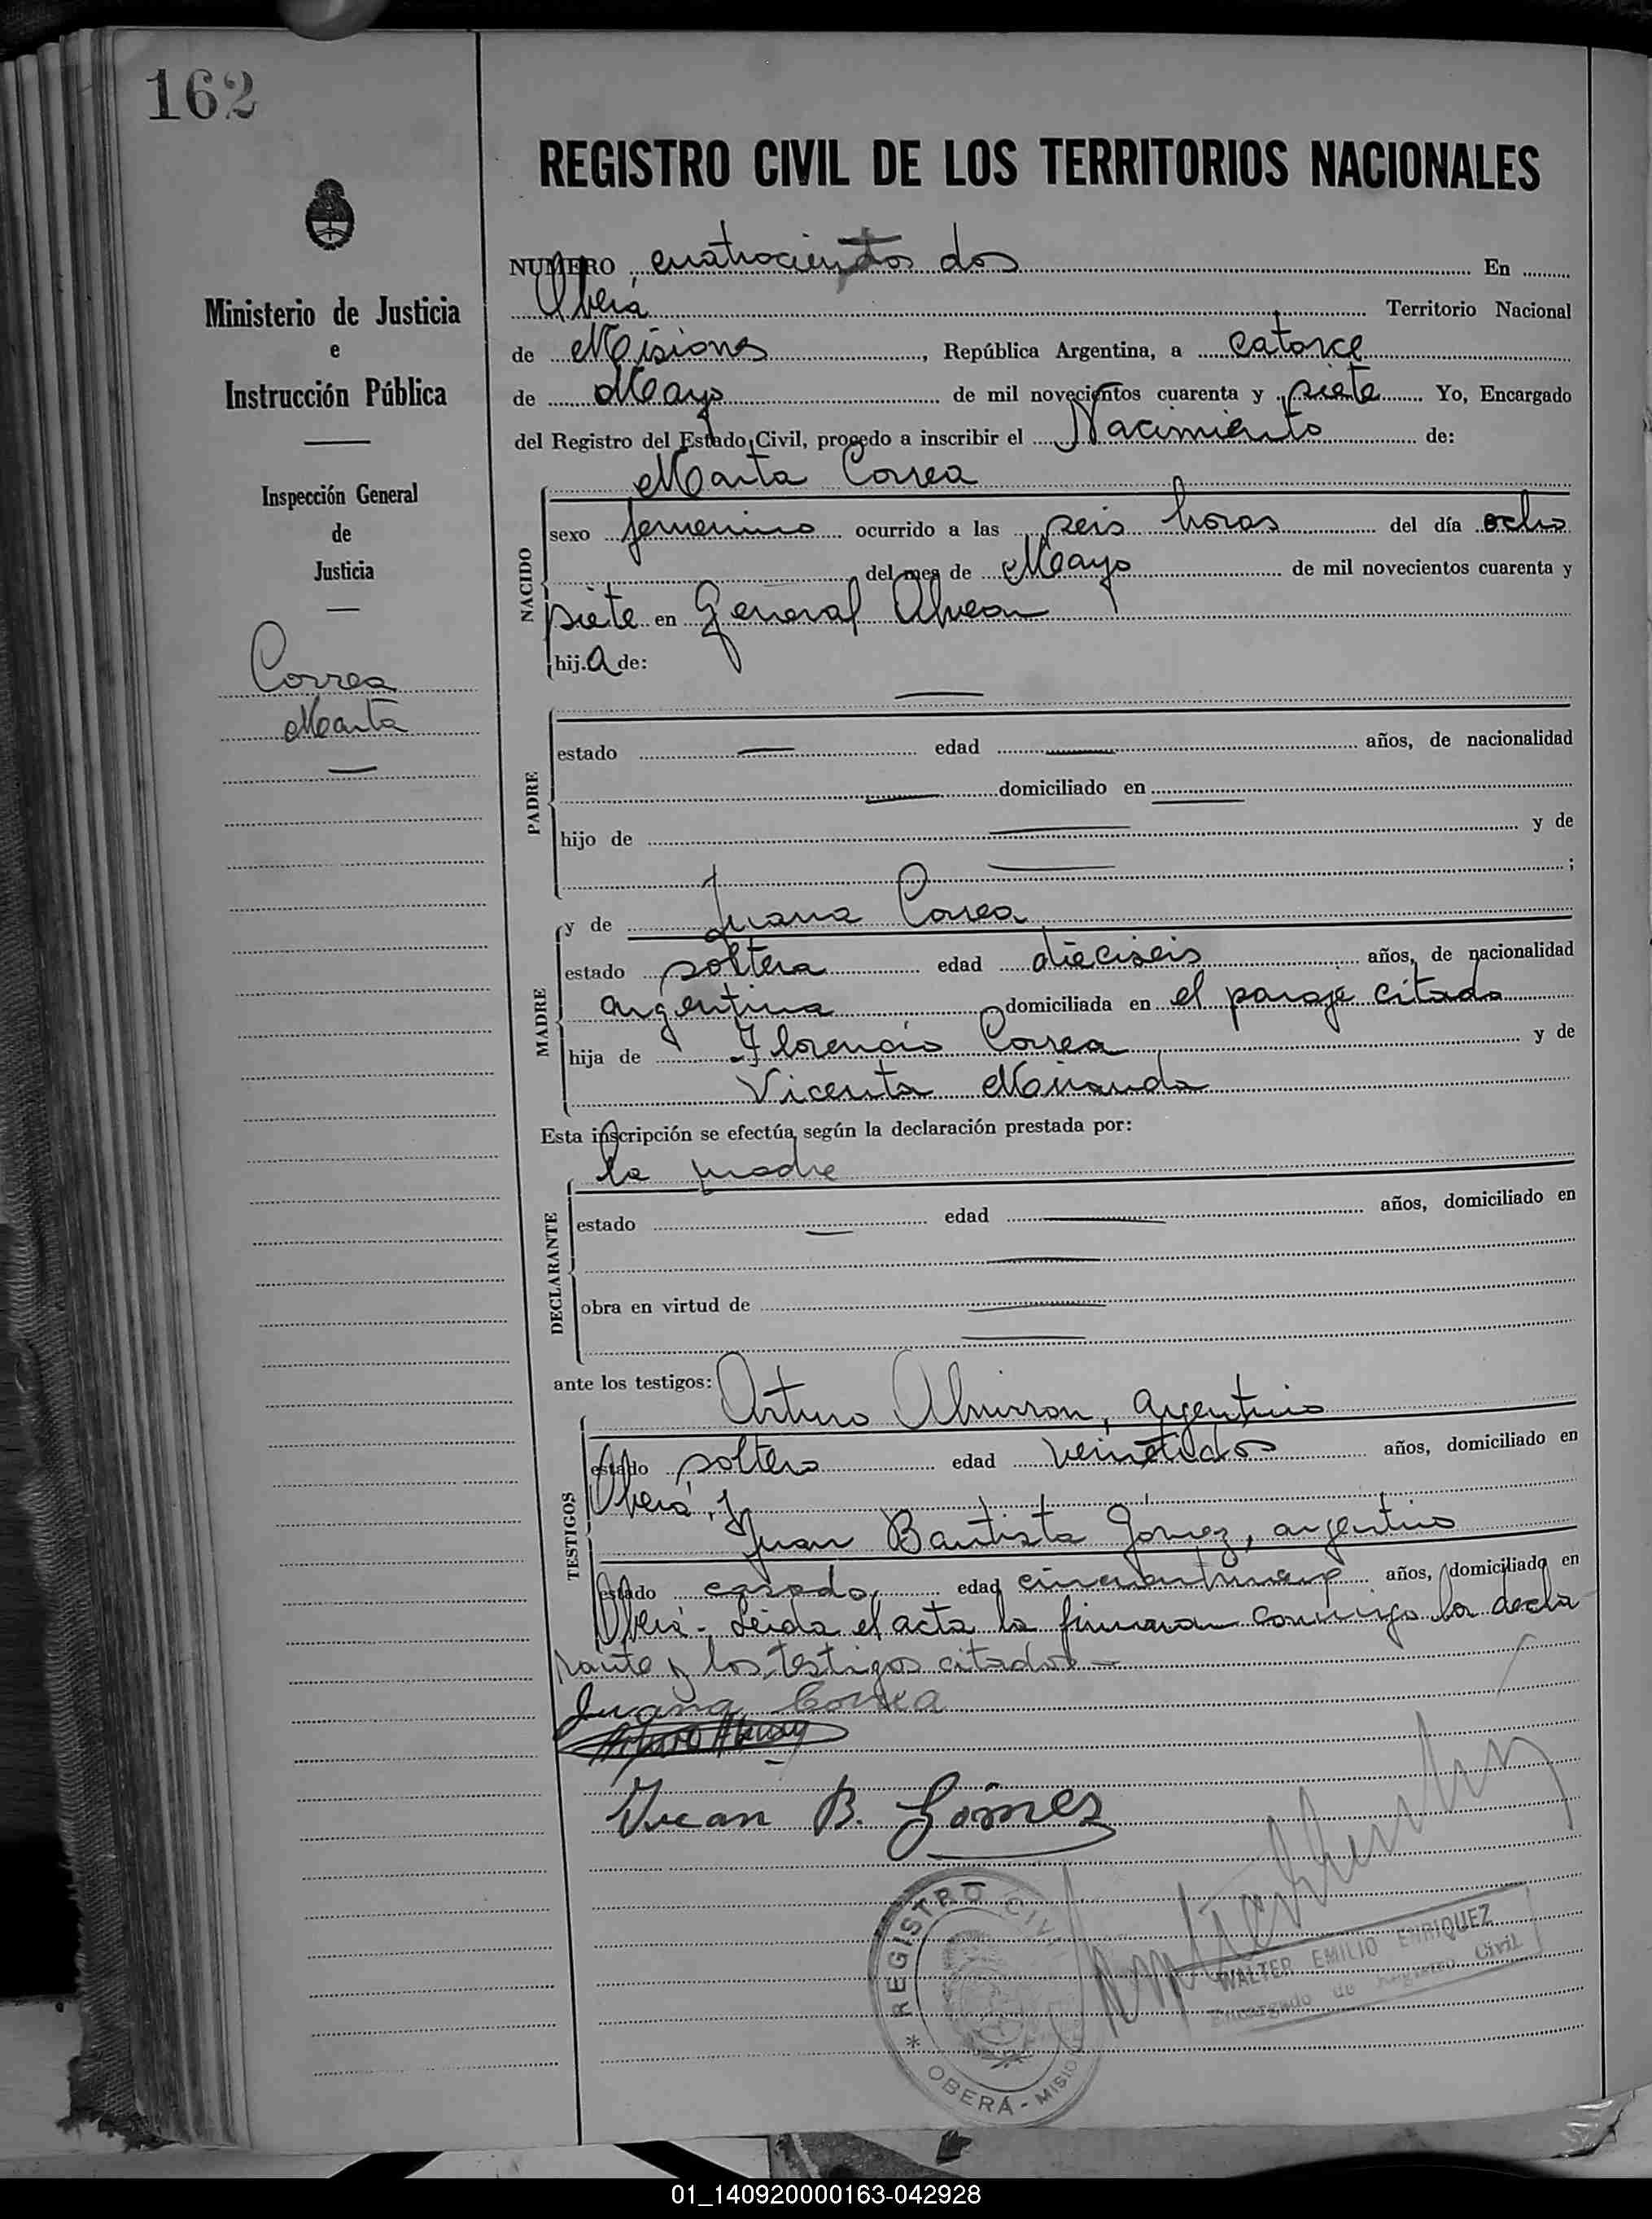 162
Ministerio de Justicia
e
Instrucción Pública
Inspección General
de
Justicia
Correa
Marta
REGISTRO CIVIL DE LOS TERRITORIOS NACIONALES
NUMERO cuatrocientos dos En
Oberá Territorio Nacional
de Misiones, República Argentina, a catorce
de Mayo de mil novecientos cuarenta y siete Yo, Encargado
del Registro del Estado Civil, procedo a inscribir el Nacimiento de:
Marta Correa
NACIDO
sexo femenino ocurrido a las seis horas del día ocho
del mes de Mayo de mil novecientos cuarenta y
siete en General Alvear
hija de:
PADRE
estado edad años, de nacionalidad
domiciliado en
hijo de y de
;
MADRE
y de Juana Correa
estado soltera edad dieciseis años, de nacionalidad
argentina domiciliada en el paraje citado
hija de Florencio Correa y de
Vicenta Miranda
Esta inscripción se efectúa según la declaración prestada por:
la madre
DECLARANTE
estado edad años, domiciliado en
obra en virtud de
ante los testigos: Arturo Almiron, argentino
TESTIGOS
estado soltero edad veintidos años, domiciliado en
Oberá, y
Juan Bautista Gomez, argentino
estado casado, edad años, domiciliado en
Oberá - Leida el acta la firman conmigo la decla
rante y los testigos citados -
Juana Correa
Juan B. Gómez
REGISTRO CIVIL
* OBERÁ - MISIO
WALTER EMILIO ENRIQUEZ
Encargado de Registro Civil
01_140920000163-042928